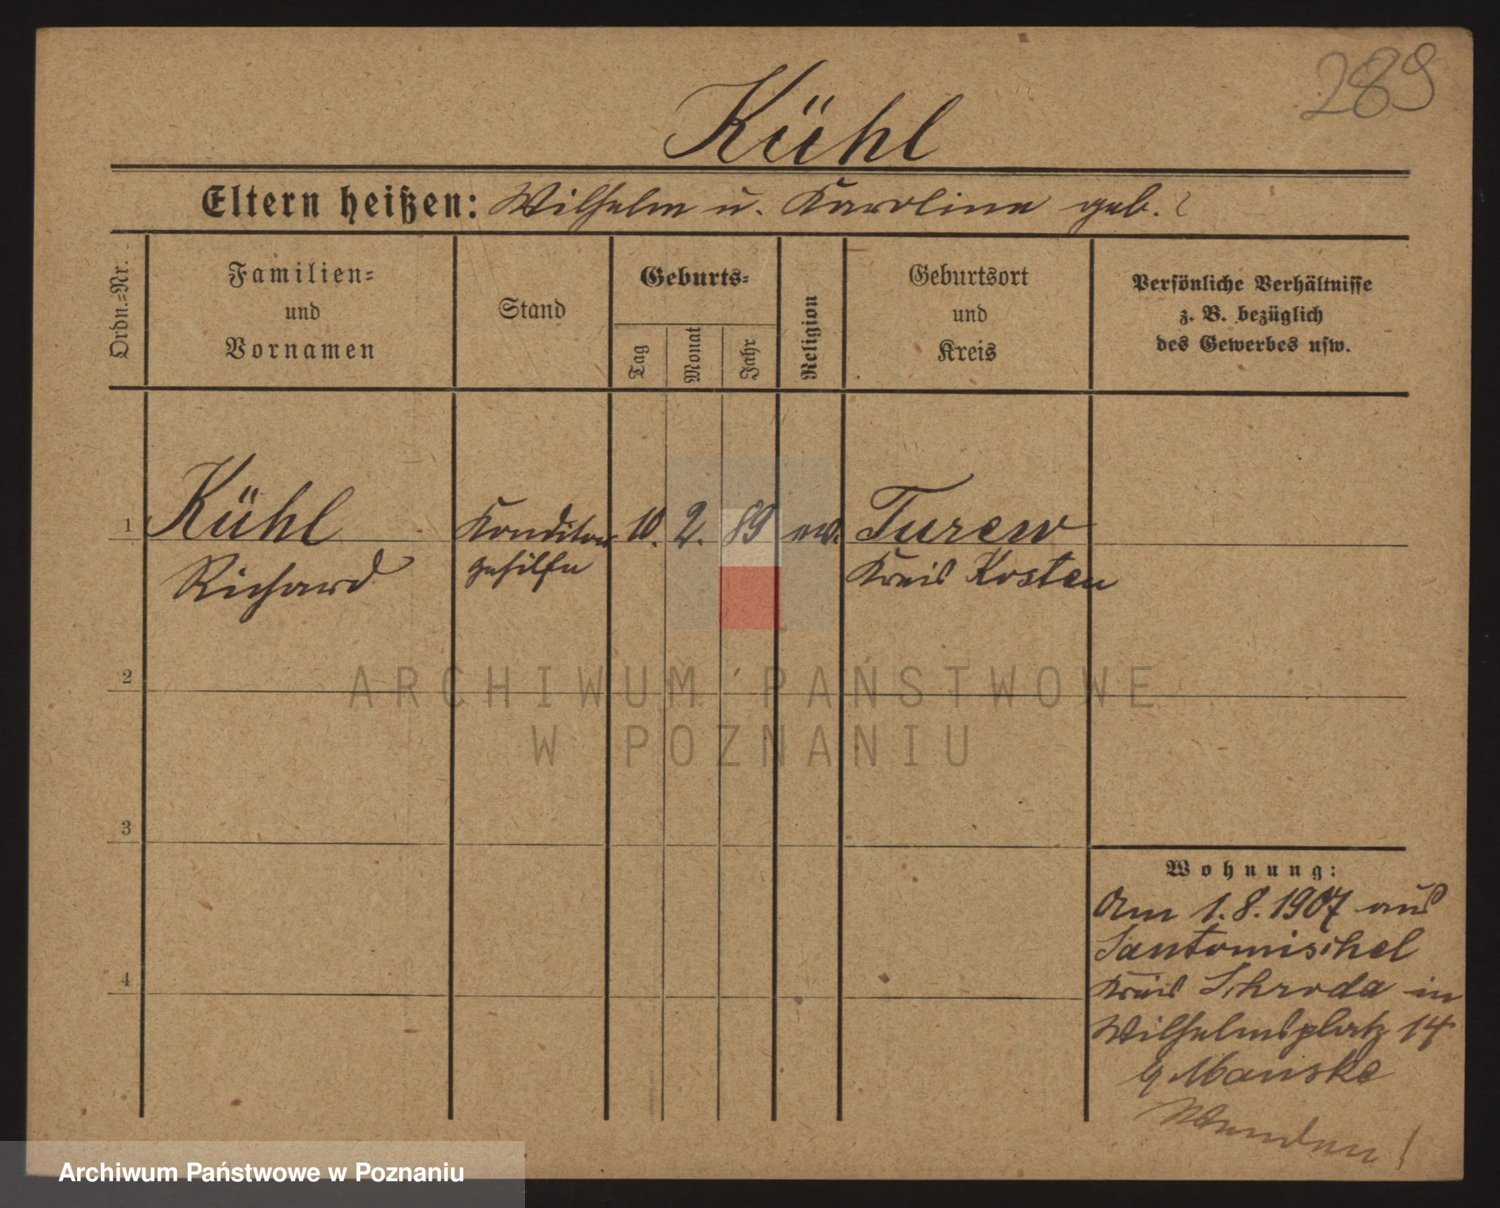 289
Kühl
Eltern heißen: Wilhelm u. Karoline geb. ?
Ordn.=Nr.
Familien=
und
Vornamen
Stand
Geburts=
Tag
Monat
Jahr
Religion
Geburtsort
und
Kreis
Persönliche Verhältnisse
z. B. bezüglich
des Gewerbes usw.
1 Kühl Konditor 10. 2. 89 ev. Turew
Richard gehilfe Kreis Kosten
2
ARCHIWUM PAŃSTWOWE
W POZNANIU
3
Wohnung:
Am 1.8.1907 aus
Santomischel
4
Kreis Schroda in
Wilhelmsplatz 14
b. Manske
Wenden!
Archiwum Państwowe w Poznaniu